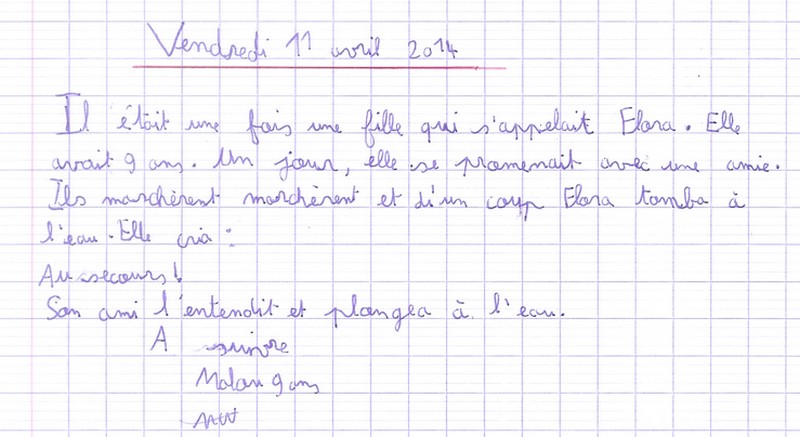 Vendredi 11 avril 2014
Il était une fois une fille qui s'appelait Elora. Elle
avait 9 ans. Un jour, elle se promenait avec une amie.
Ils marchèrent marchèrent et d'un coup Elora tomba à
l'eau. Elle cria :
Au secours !
Son ami l'entendit et plongea à l'eau.
A suivre
9 ans